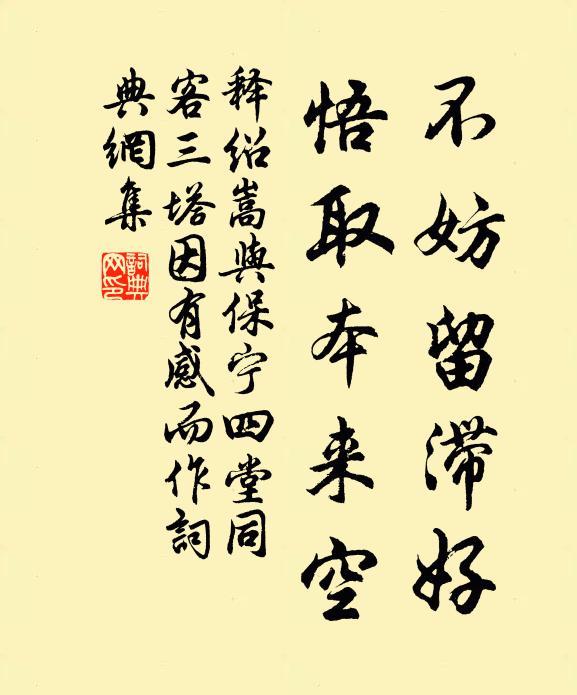 不妨留滞好
悟取本来空
释绍嵩與保宁四堂同
客三塔因有感而作詞
典網集
詞典
网印